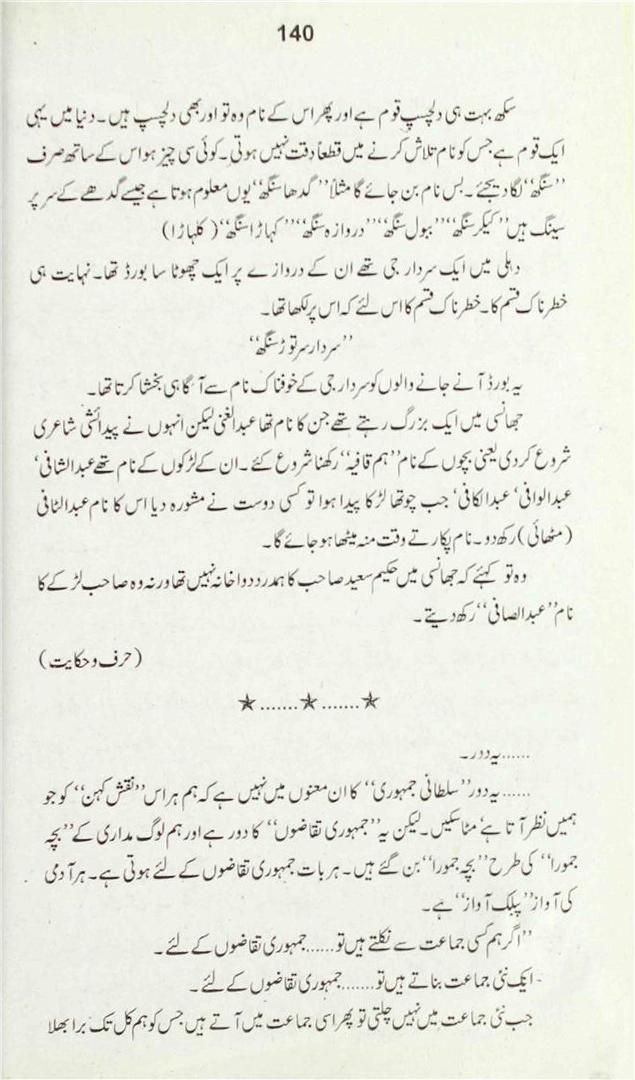 140
سکھ بہت ہی دلچسپ قوم ہے اور پھر اس کے نام وہ تو اور بھی دلچسپ ہیں۔ دنیا میں یہی
ایک قوم ہے جس کو نام تلاش کرنے میں قطعاً دقت نہیں ہوتی۔ کوئی سی چیز ہو اس کے ساتھ صرف
”سنگھ“ لگا دیجئے۔ بس نام بن جائے گا مثلاً ”گدھا سنگھ“ یوں معلوم ہوتا ہے جیسے گدھے کے سر پر
سینگ ہیں ”کیکر سنگھ“ ”ببول سنگھ“ ”دروازہ سنگھ“ ”کہاڑا سنگھ“ (کلہاڑا)
دہلی میں ایک سردار جی تھے ان کے دروازے پر ایک چھوٹا سا بورڈ تھا۔ نہایت ہی
خطرناک قسم کا۔ خطرناک قسم کا اس لئے کہ اس پر لکھا تھا۔
”سردار سر توڑ سنگھ“
یہ بورڈ آنے جانے والوں کو سردار جی کے خوفناک نام سے آگاہی بخشا کرتا تھا۔
جھانسی میں ایک بزرگ رہتے تھے جن کا نام تھا عبدالغنی لیکن انہوں نے پیدائشی شاعری
شروع کر دی یعنی بچوں کے نام ”ہم قافیہ“ رکھنا شروع کئے۔ ان کے لڑکوں کے نام تھے عبدالشافی‘
عبدالوافی‘ عبدالکافی‘ جب چوتھا لڑکا پیدا ہوا تو کسی دوست نے مشورہ دیا اس کا نام عبدالٹافی
(مٹھائی) رکھ دو۔ نام پکارتے وقت منہ میٹھا ہو جائے گا۔
وہ تو کہئے کہ جھانسی میں حکیم سعید صاحب کا ہمدرد دواخانہ نہیں تھا ورنہ وہ صاحب لڑکے کا
نام ”عبدالصافی“ رکھ دیتے۔
(حرف و حکایت)
★.......★.......★
......یہ دور۔
......یہ دور ”سلطانی جمہوری“ کا ان معنوں میں نہیں ہے کہ ہم ہر اس ”نقش کہن“ کو جو
ہمیں نظر آتا ہے‘ مٹا سکیں۔ لیکن یہ ”جمہوری تقاضوں“ کا دور ہے اور ہم لوگ مداری کے ”بچہ
جمورا“ کی طرح ”بچہ جمورا“ بن گئے ہیں۔ ہر بات جمہوری تقاضوں کے لئے ہوتی ہے۔ ہر آدمی
کی آواز ”پبلک آواز“ ہے۔
”اگر ہم کسی جماعت سے نکلتے ہیں تو......جمہوری تقاضوں کے لئے۔
ایک نئی جماعت بناتے ہیں تو.......جمہوری تقاضوں کے لئے۔
جب نئی جماعت میں نہیں چلتی تو پھر اسی جماعت میں آتے ہیں جس کو ہم کل تک برا بھلا